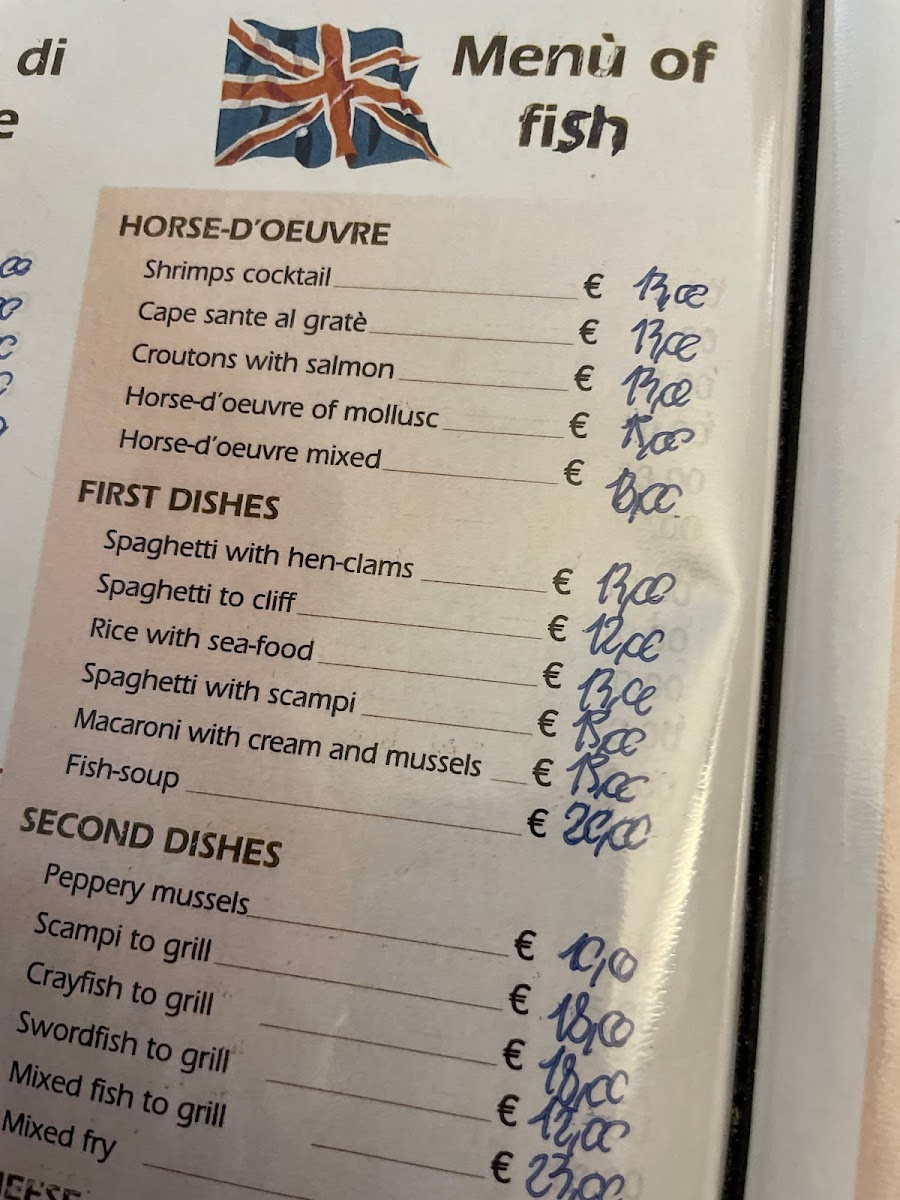 di
e
Menù of
fish
HORSE-D'OEUVRE
Shrimps cocktail € 13,00
Cape sante al gratè € 13,00
Croutons with salmon € 13,00
Horse-d'oeuvre of mollusc € 15,00
Horse-d'oeuvre mixed €
FIRST DISHES
Spaghetti with hen-clams € 13,00
Spaghetti to cliff € 12,00
Rice with sea-food € 13,00
Spaghetti with scampi € 15,00
Macaroni with cream and mussels € 13,00
Fish-soup € 20,00
SECOND DISHES
Peppery mussels € 10,0
Scampi to grill € 18,00
Crayfish to grill € 18,00
Swordfish to grill €
Mixed fish to grill € 23,00
Mixed fry